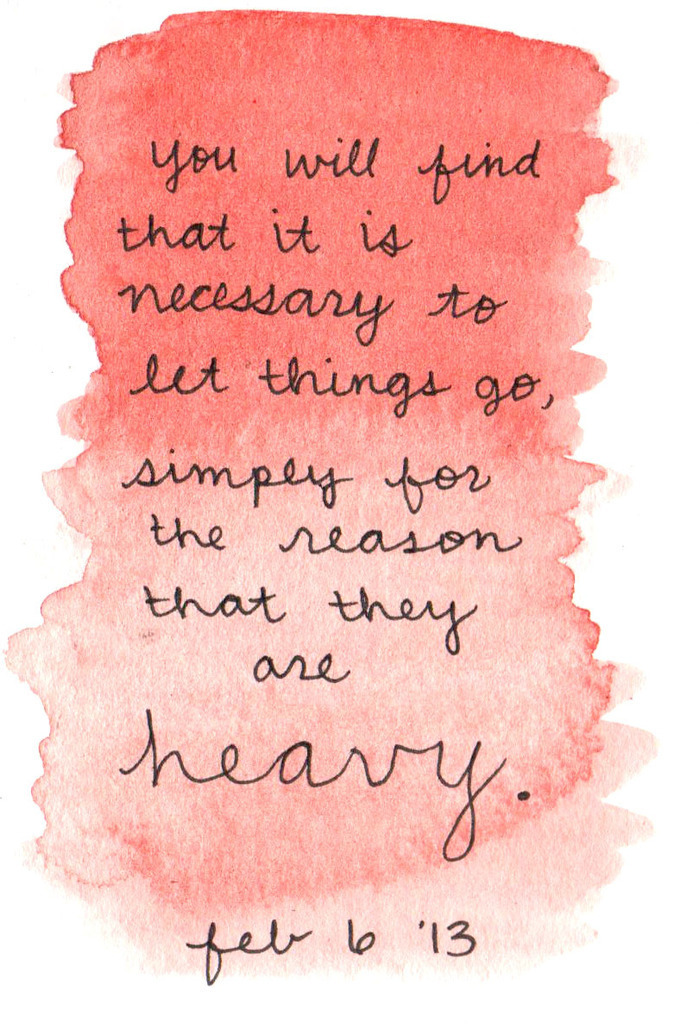 You will find
that it is
necessary to
let things go,
simply for
the reason
that they
are
heavy.
feb 6 '13